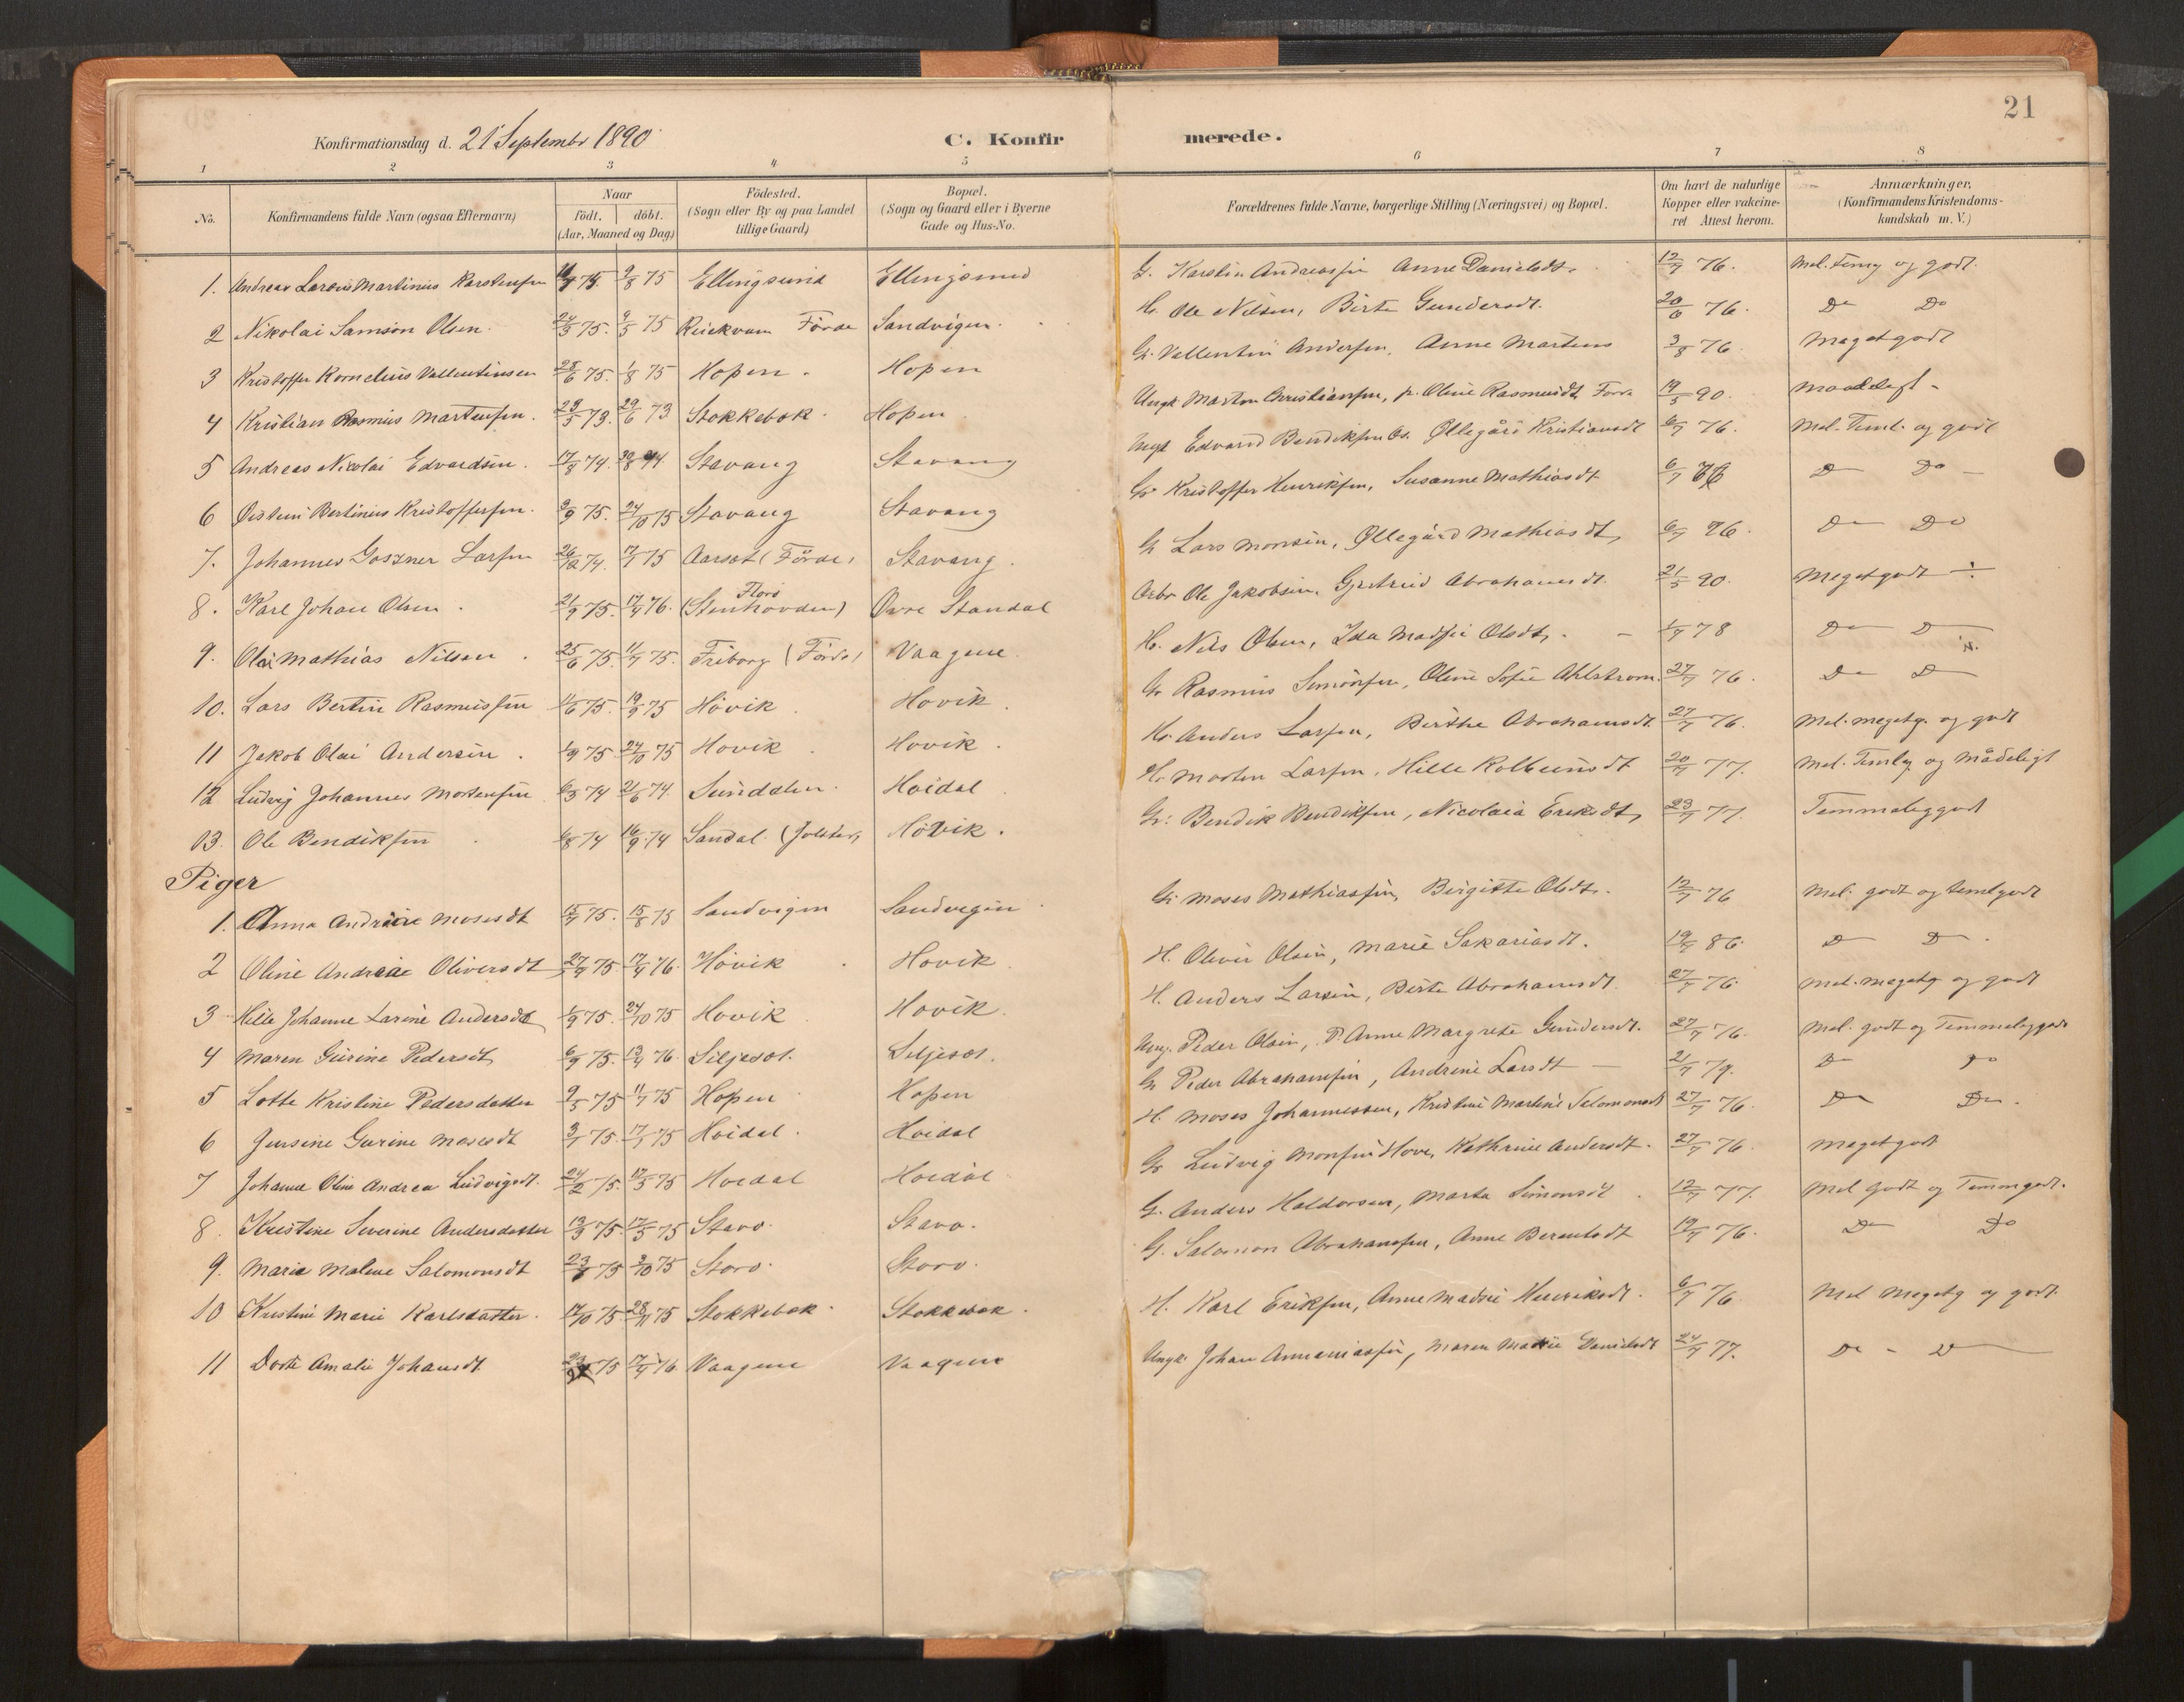 21
Konfirmationsdag d. 21 Septembr 1890
C. Konfirmerede.
1 2 3 4 5 6 7 8
No. Konfirmandens fulde Navn (ogsaa Efternavn) Naar födt. döbt. (Aar, Maaned og Dag) Födested. (Sogn eller By og paa Landet tillige Gaard) Bopæl. (Sogn og Gaard eller i Byerne Gade og Hus-No. Forældrenes fulde Navne, borgerlige Stilling (Næringsvei) og Bopæl. Om havt de naturlige Kopper eller vakcineret Attest herom. Anmærkninger, (Konfirmandens Kristendomskundskab m. V.)
1. Andreas Martinius Karstensen 75 9/8 75 Ellingsund Ellingsund G. Karstin Andreassen Anne Danielsdt. 12/7 76. Mel. Teml og godt.
2 Nikolai Samson Olsen. 75. 9/5 75 Förde Sandvigen. H. Ole Nilsen, Birte Gundersdt. 20/6 76. Do Do
3 Kristoffer Kornelius Vallentinsen 28/6 75. 1/8 75 Hopen. Hopen G. Vallentin Andersen, Anne Martens 3/8 76 Megetgodt
4 Kristian Rasmus Martensen. 23/5 73. 29/6 73 Stokkebök. Hopen Ungk Marten Christiansen, p. Oline Rasmusdt Förde 19/5 90. Maadeligt -
5 Andreas Nicolai Edvardsen. 17/8 74. Stavang Stavang Ungk Edvard Bendiksen Øllegård Kristiansdt 6/7 76. Mel. Teml. og godt
6 Bertinius Kristoffersen. 75. 24/10 75 Stavang Stavang Gr Kristoffer Henriksen, Susanne Mathiasdt 6/7 76 Do Do -
7. Johannes Larsen 26/12 74. 17/1 75 Aarset (Förde) Stavang. G. Lars Monsen, Øllegård Mathiasdt, 6/7 76. Do Do
8. Karl Johan Olsen. 21/9 75. 17/4 76. Florö (Stenhovden) Övre Standal Arbr Ole Jakobsen, Gjertrud Abrahamsdt. 21/5 90. Megetgodt ÷
9. Olai Mathias Nilsen. 25/6 75. 11/7 75. Friborg (Förde) Vaagene. H. Nils Olsen, Ida Olsdt. - 1/7 78 Do D
10. Lars Bertin Rasmussen 75. 19/9 75 Hövik. Hovik. Gr Rasmus Simonsen, Oline Sofie Ahlstrom. 27/7 76. Do D
11 Jakob Olai Andersen. 1/9 75 24/10 75 Hovik. Hovik. Hr. Anders Larsen, Birthe Abrahamsdt. 27/7 76. Mel. megetg. og godt
12 Ludvig Johannes Mortensen 74 21/6 74. Sunddalen. Hoidal Hr. Morten Larsen, Hille Kolbeinsdt 20/7 77. Mel. Temlig og mådeligt
13. Ole Bendiksen 6/8 74 16/9 74 Sandal. (Jolster) Hövik. Gr: Bendik Bendiksen, Nicolaia Eriksdt, 23/7 77. Temmeliggodt
Piger
1. Anna Andrine Mosesdt 15/7 75. 15/8 75 Sandvigen Sandvigen G. Moses Mathiassen, Birgitte Olsdt. 12/7 76 Mel. godt og temlgodt
2 Oline Andrea Oliversdt 75 17/4 76. Hövik. Hovik H. Oliver Olsen, Marie Sakariasdt. 19/7 86. D D.
3 Hille Johanne Larine Andersdt 1/9 75. 24/10 75 Hovik. Hovik. H. Anders Larsen, Birte Abrahamsdt. 27/7 76. Mel. megetg og godt
4 Maren Gurine Pedersdt, 6/9 75. 13/4 76. Siljesöt. Seljesöt. Ung. Peder Olsen, P. Anne Margrete Gundersdt. 27/7 76. Mel. godt og Temmeliggodt
5 Lotte Kristine Pedersdatter 9/5 75 11/7 75 Hopen Hopen G. Peder Abrahamsen, Andrine Larsdt - 21/7 79. D Do
6 Jensine Gurine Mosesdt 3/1 75. 17/1 75 Hoidal. Hoidal H. Moses Johannessen, Kristine Martine Salomonsdt 27/7 76. Do Do.
7 Johanne Oline Andrea Ludvigsdt. 24/2 75. 17/5 75 Hoidal Hoidal Gr Ludvig Monsen Hove, Kathrine Andersdt. 27/7 76. Megetgodt
8. Kristine Severine Andersdatter 13/3 75. 17/5 75 Stavö. Stavö. G. Anders Haldorsen, Marta Simonsdt. 12/7 77. Mel godt og Temmgodt.
9. Maria Malene Salomonsdt 75 3/10 75 Storö. Storö. G. Salomon Abrahamsen, Anne Berentsdt 19/7 76. Do Do
10 Kristine Marie Karlsdatter. 17/10 75 28/11 75 Stokkebök. Stokkebök. H. Karl Eriksen, Anne Madsie Henriksdt. 6/7 76 Mel megetg og godt.
11 Dorte Amalie Johansdt. 75 17/4 76 Vaagene Vaagene Ungk. Johan Annaniassen, Maren Danielsdt 24/7 77. Do - D